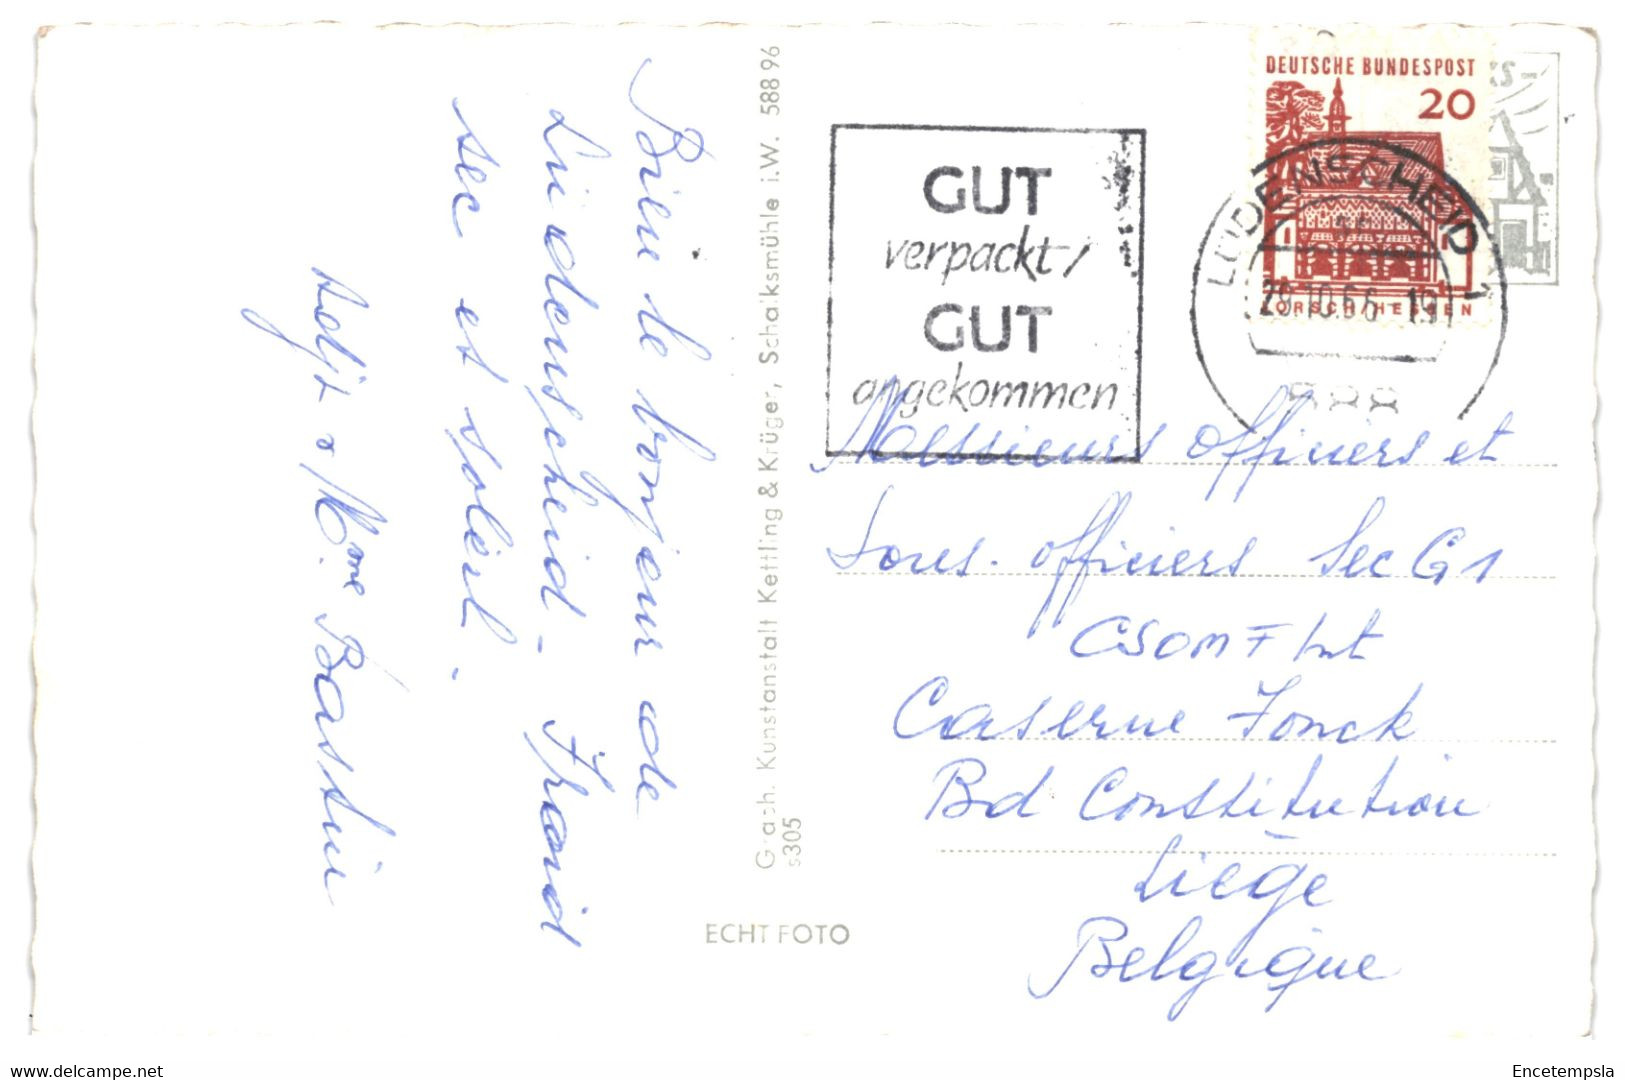 Bien le bonjour de
Lüdenscheid - Froid
sec et soleil.
Adjt & Mme Bastin
Graph. Kunstanstalt Kettling & Krüger, Schalksmühle i.W. 588 96
s305
ECHT FOTO
GUT
verpackt/
GUT
angekommen
DEUTSCHE BUNDESPOST
20
LORSCH/HESSEN
LÜDENSCHEID 1
29.10.66-19
588
Messieurs Officiers et
Sous-officiers Sec G1
CSOMF Int
Caserne Fonck
Bd Constitution
Liège
Belgique
delcampe.net
Encetempsla